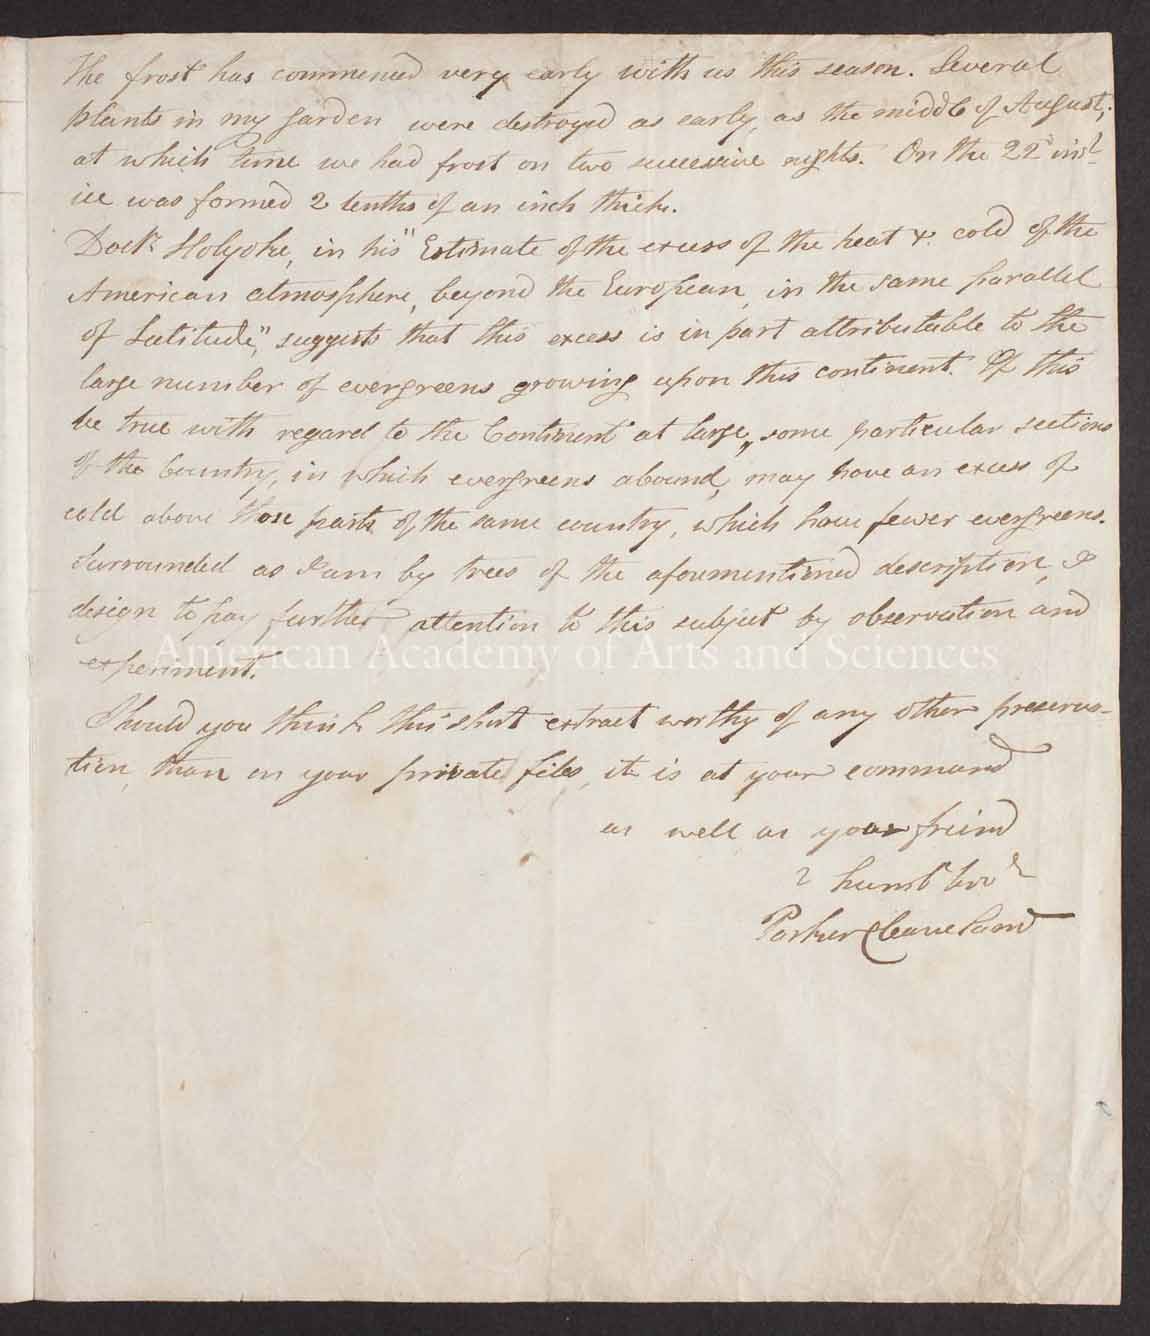 The frost has commenced very early with us this season. Several
plants in my garden were destroyed as early, as the middle of August;
at which time we had frost on two successive nights. On the 22d inst
ice was formed 2 tenths of an inch thick.
Doctr Holyoke, in his "Estimate of the excess of the heat & cold of the
American atmosphere, beyond the European, in the same parallel
of Latitude", suggests that this excess is in part attributable to the
large number of evergreens growing upon this continent. If this
be true with regard to the Continent at large, some particular sections
of the Country, in which evergreens abound, may have an excess of
cold above those parts of the same country, which have fewer evergreens.
Surrounded as I am by trees of the aforementioned description, I
design to pay further attention to this subject by observation and
American Academy of Arts and Sciences
experiment.
Should you think this short extract worthy of any other preserva-
tion, than on your private files, it is at your command
as well as your friend
& humbe
Parker Cleaveland